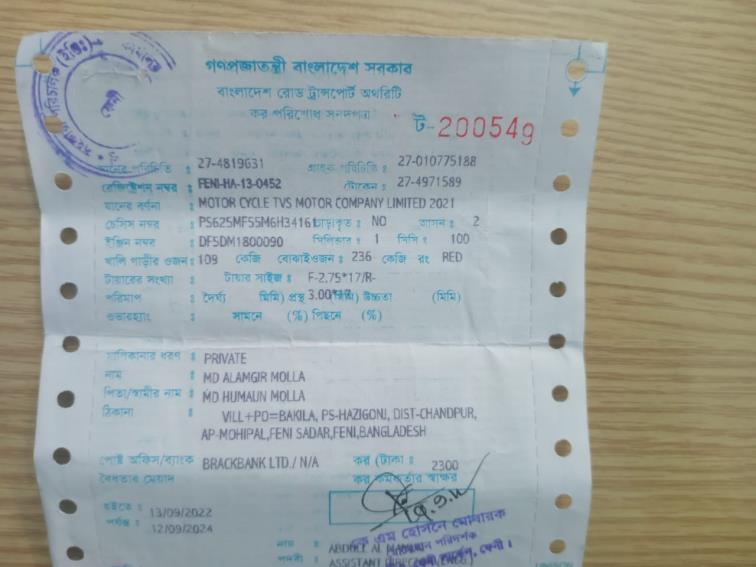 গণপ্রজাতন্ত্রী বাংলাদেশ সরকার
বাংলাদেশ রোড ট্রান্সপোর্ট অথরিটি
কর পরিশোধ সনদপত্র
ট-200549
পরিচিতি : 27-4819631 গ্রাহক পরিচিতি : 27-010775188
রেজিস্ট্রেশন নম্বর : FENI-HA-13-0452 টোকেন : 27-4971589
যানের বর্ণনা : MOTOR CYCLE TVS MOTOR COMPANY LIMITED 2021
চেসিস নম্বর : PS625MF55M6H34161 ভাড়াকৃত : NO আসন : 2
ইঞ্জিন নম্বর : DF5DM1800090 সিলিন্ডার : 1 সিসি : 100
খালি গাড়ীর ওজন : 109 কেজি বোঝাইওজন : 236 কেজি রং RED
টায়ারের সংখ্যা : টায়ার সাইজ : F-2.75*17/R-
পরিমাপ : দৈর্ঘ্য মিমি) প্রস্থ 3.00*17 উচ্চতা (মিমি)
ওভারহ্যাং : সামনে (%) পিছনে (%)
মালিকানার ধরণ : PRIVATE
নাম : MD ALAMGIR MOLLA
পিতা/স্বামীর নাম : MD HUMAUN MOLLA
ঠিকানা : VILL+PO=BAKILA, PS-HAZIGONJ, DIST-CHANDPUR,
AP-MOHIPAL,FENI SADAR,FENI,BANGLADESH
পোষ্ট অফিস/ব্যাংক BRACKBANK LTD./ N/A কর (টাকা : 2300
বৈধতার মেয়াদ কর কর্মকর্তার স্বাক্ষর
হইতে : 13/09/2022
পর্যন্ত : 12/09/2024
কে এম হোসেন মোবারক
নাম : ABDULL AL
পদবী : ASSISTANT
ফেনী।